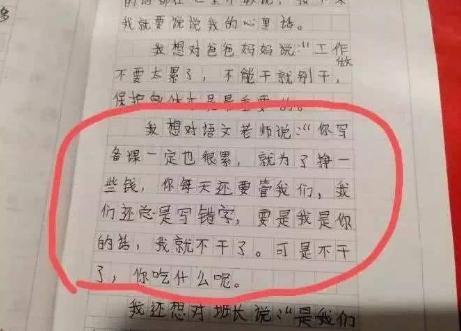 我就要说说我的心里话。
我想对爸爸妈妈说:“工作
不要太累了,不能干就别干,
保护身体才是最重要的。
我想对语文老师说:“你写
备课一定也很累,就为了挣一
些钱,你每天还要管我们,我
们还总是写错字,要是我是你
的话,我就不干了。可是不干
了,你吃什么呢。
我还想对班长说:“是我们